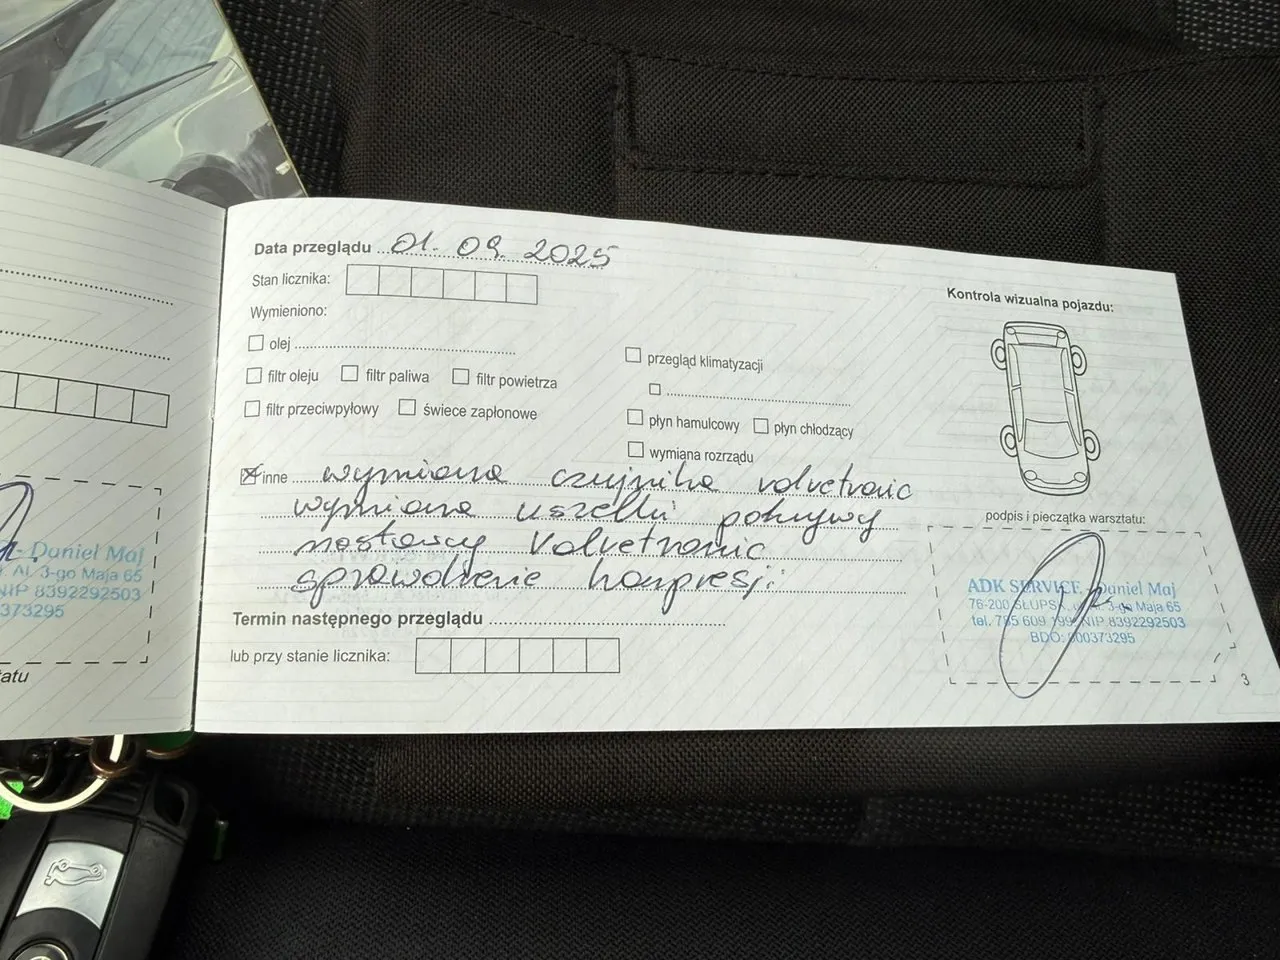 Data przeglądu 01.09.2025
Stan licznika:
Wymieniono:
olej
filtr oleju filtr paliwa filtr powietrza
filtr przeciwpyłowy świece zapłonowe
przegląd klimatyzacji
płyn hamulcowy płyn chłodzący
wymiana rozrządu
inne wymiana czujnika valvetronic
wymiana uszczelki pokrywy
nastawy Valvetronic
sprawdzenie kompresji
Termin następnego przeglądu
lub przy stanie licznika:
Kontrola wizualna pojazdu:
podpis i pieczątka warsztatu:
ADK SERVICE - Daniel Maj
76-200 SŁUPSK, Al. 3-go Maja 65
tel. 785 609 199, NIP 8392292503
BDO: 000373295
3
- Daniel Maj
Al. 3-go Maja 65
NIP 8392292503
373295
tatu